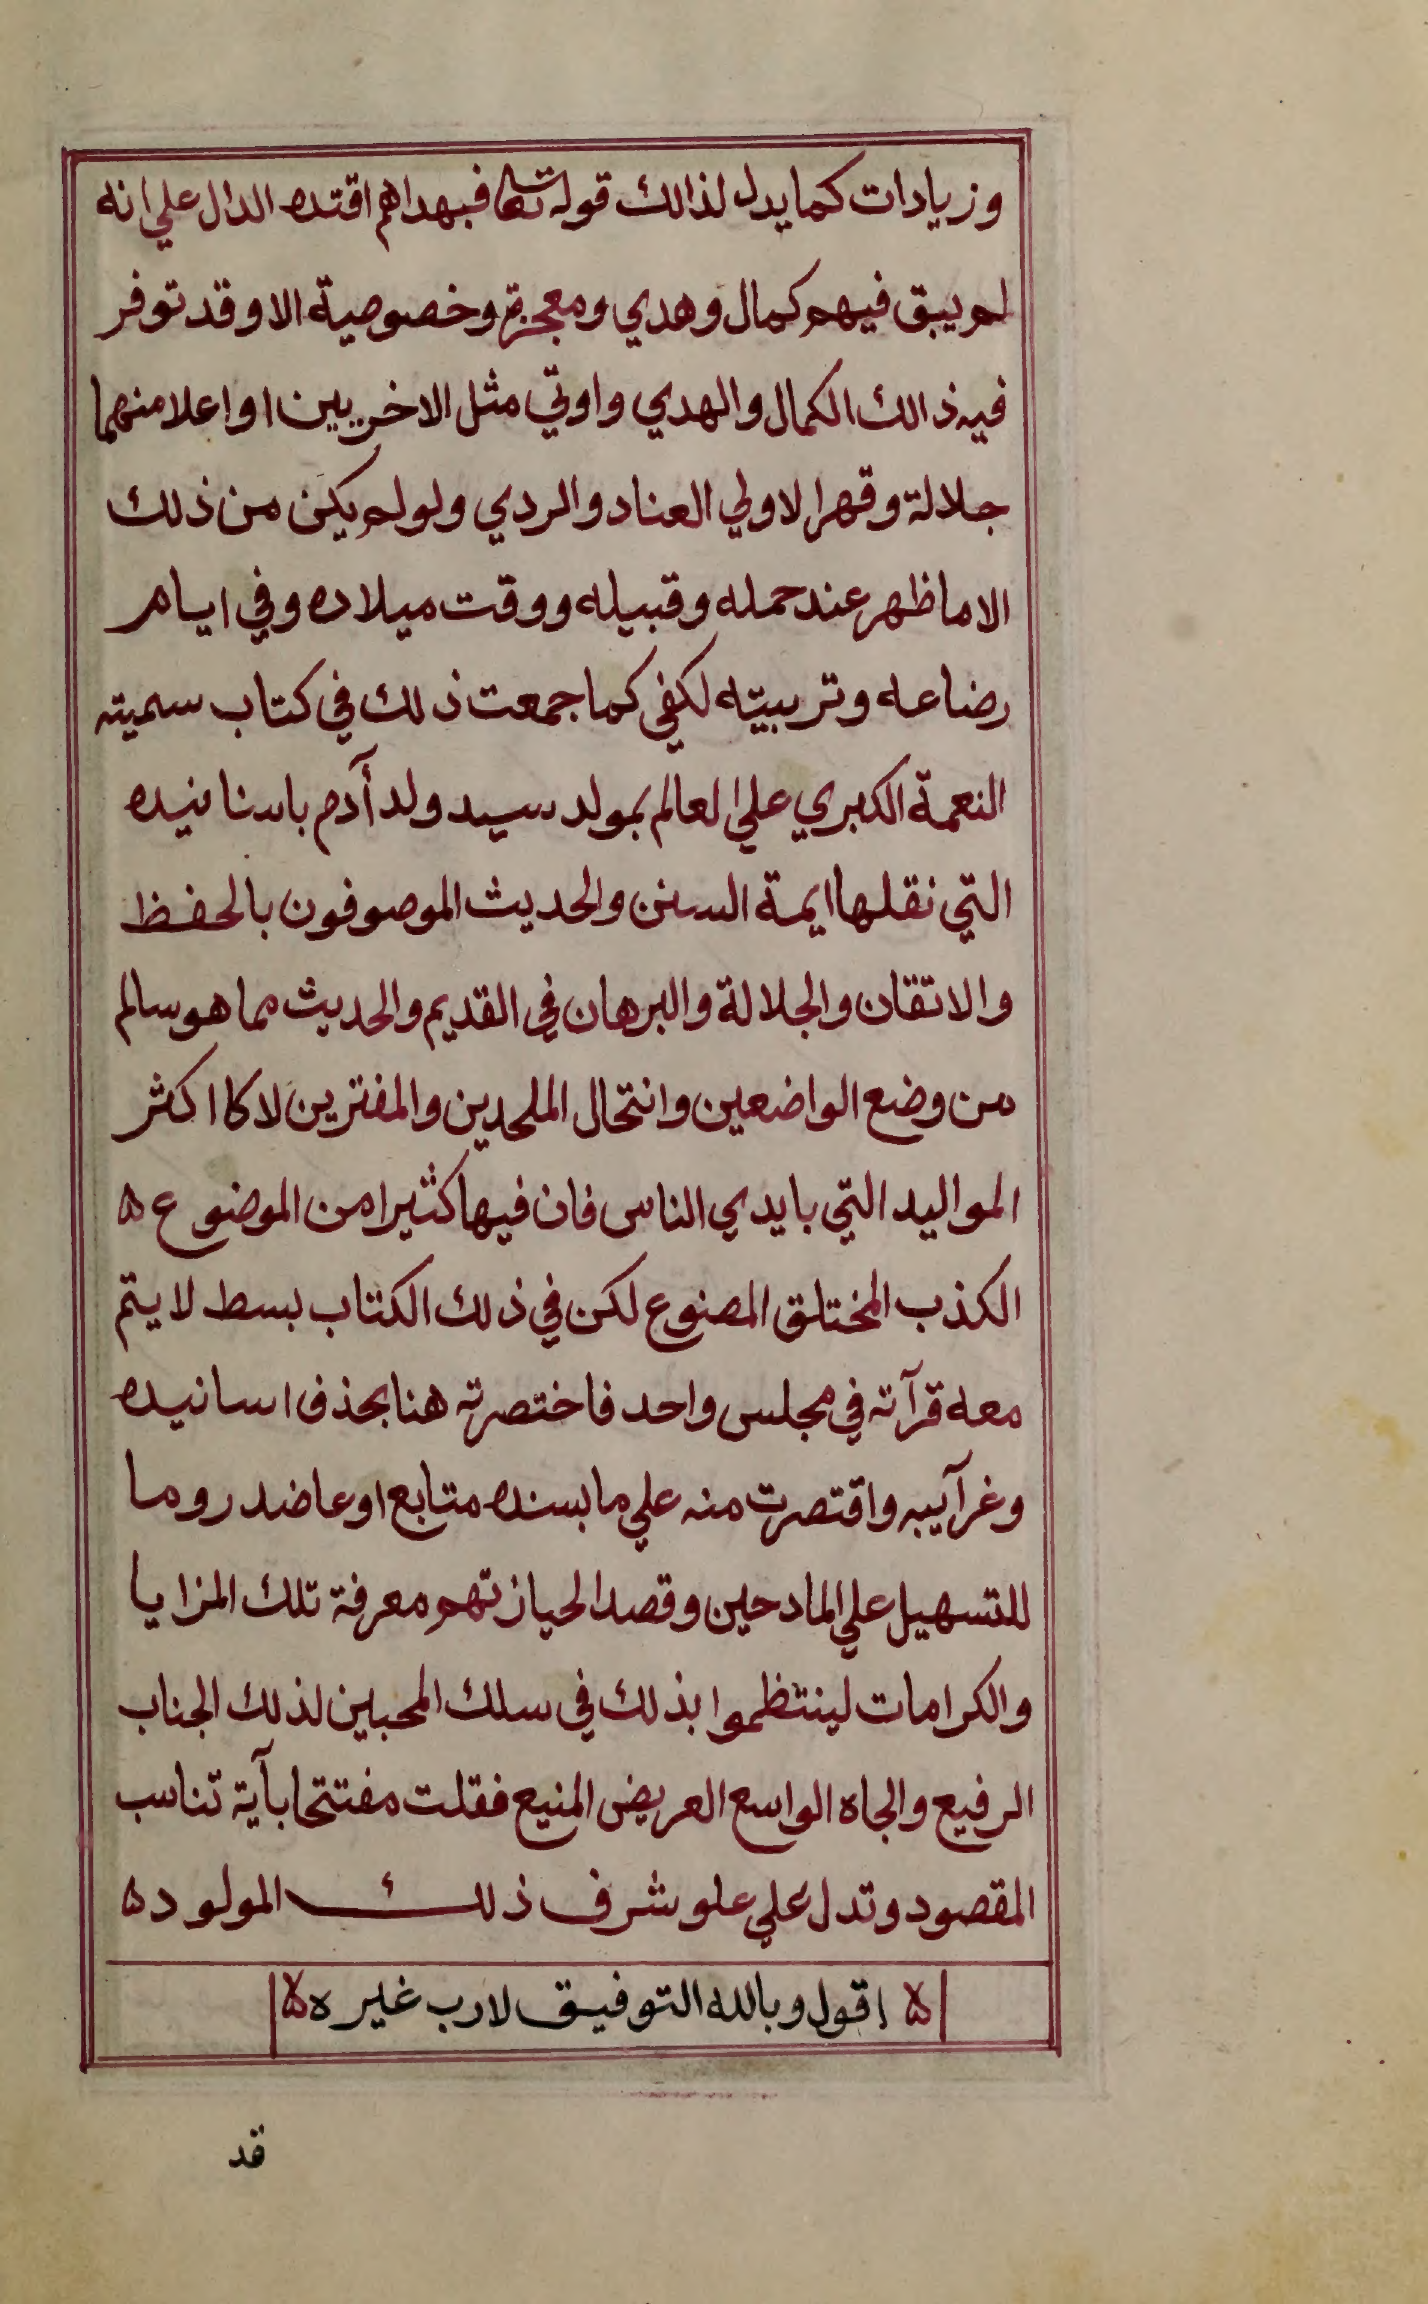 وزيادات كما يدل لذالك قوله تعا فبهداهم اقتده الدال علي انه
لم يبق فيهم كمال وهدي ومعجزة وخصوصية الا وقد توفر
فيه ذالك الكمال والهدي واوتي مثل الاخريين او اعلا منهما
جلالة وقهرا لاولي العناد والردي ولو لم يكن من ذلك
الا ما ظهر عند حمله وقبيله ووقت ميلاده وفي ايام
رضاعه وتربيته لكفي كما جمعت ذلك في كتاب سميته
النعمة الكبري علي العالم بمولد سيد ولد آدم باسنانيده
التي نقلها ايمة السنن والحديث الموصوفون بالحفظ
والاتقان والجلالة والبرهان في القديم والحديث مما هو سالم
من وضع الواضعين وانتحال الملحدين والمفترين لا كا اكثر
المواليد التي بايدي الناس فان فيها كثيرا من الموضوع ه
الكذب المختلق المصنوع لكن في ذلك الكتاب بسط لا يتم
معه قرآته في مجلس واحد فاختصرته هنا بحذف اسانيده
وغرآيبه واقتصرت منه علي ما بسنده متابع او عاضد روما
للتسهيل علي المادحين وقصدا لحيازتهم معرفة تلك المزايا
والكرامات لينتظموا بذلك في سلك المحبين لذلك الجناب
الرفيع والجاه الواسع العريض المنيع فقلت مفتتحا بآية تناسب
المقصود وتدل علي علو شرف ذلك المولود ه
اقول وبالله التوفيق لا رب غيره
قد